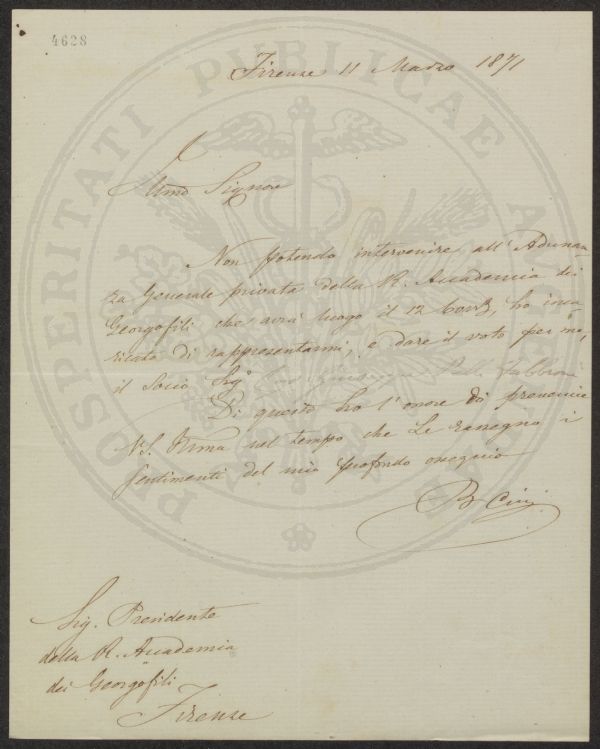 4628
Firenze 11 Marzo 1871
Illmo Signore
Non potendo intervenire all' Adunan
za Generale privata della R. Accademia dei
Georgofili che avrà luogo il 12 Corr, ho inca
ricato di rappresentarmi, e dare il voto per me,
il Socio Sigr
Di questo ho l'onore di prevenire
V. S. Illma nel tempo che Le rassegno i
sentimenti del mio profondo ossequio
B Cini
Sig. Presidente
della R. Accademia
dei Georgofili
Firenze
PROSPERITATI PUBLICAE AUGENDAE